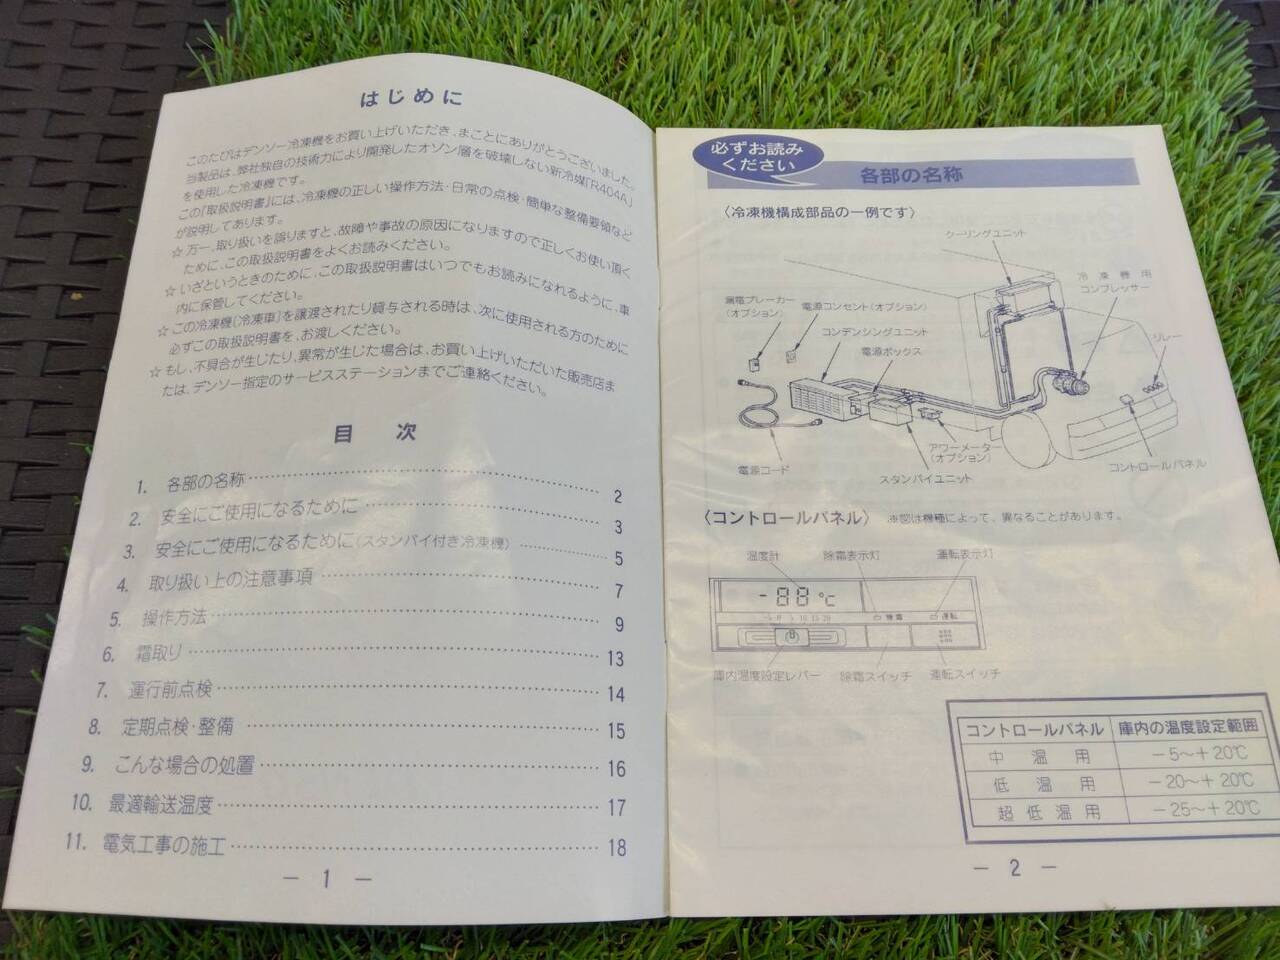 はじめに
このたびはデンソー冷凍機をお買い上げいただき、まことにありがとうございました。
当製品は、弊社独自の技術力により開発したオゾン層を破壊しない新冷媒「R404A」
を使用した冷凍機です。
この「取扱説明書」には、冷凍機の正しい操作方法・日常の点検・簡単な整備要領など
が説明してあります。
☆万一、取り扱いを誤りますと、故障や事故の原因になりますので正しくお使い頂く
ために、この取扱説明書をよくお読みください。
☆いざというときのために、この取扱説明書はいつでもお読みになれるように、車
内に保管してください。
☆この冷凍機〔冷凍車〕を譲渡されたり貸与される時は、次に使用される方のために
必ずこの取扱説明書を、お渡しください。
☆もし、不具合が生じたり、異常が生じた場合は、お買い上げいただいた販売店ま
たは、デンソー指定のサービスステーションまでご連絡ください。
目 次
1. 各部の名称 2
2. 安全にご使用になるために 3
3. 安全にご使用になるために(スタンバイ付き冷凍機) 5
4. 取り扱い上の注意事項 7
5. 操作方法 9
6. 霜取り 13
7. 運行前点検 14
8. 定期点検・整備 15
9. こんな場合の処置 16
10. 最適輸送温度 17
11. 電気工事の施工 18
— 1 —
必ずお読み
ください
各部の名称
〈冷凍機構成部品の一例です〉
クーリングユニット
冷凍機用
コンプレッサー
漏電ブレーカー
(オプション)
電源コンセント(オプション)
コンデンシングユニット
電源ボックス
リレー
アワーメーター
(オプション)
電源コード
スタンバイユニット
コントロールパネル
〈コントロールパネル〉 ※図は機種によって、異なることがあります。
温度計 除霜表示灯 運転表示灯
-88℃
-5 0 5 10 15 20 除霜 運転
庫内温度設定レバー 除霜スイッチ 運転スイッチ
コントロールパネル 庫内の温度設定範囲
中温用 －5～＋20℃
低温用 －20～＋20℃
超低温用 －25～＋20℃
— 2 —